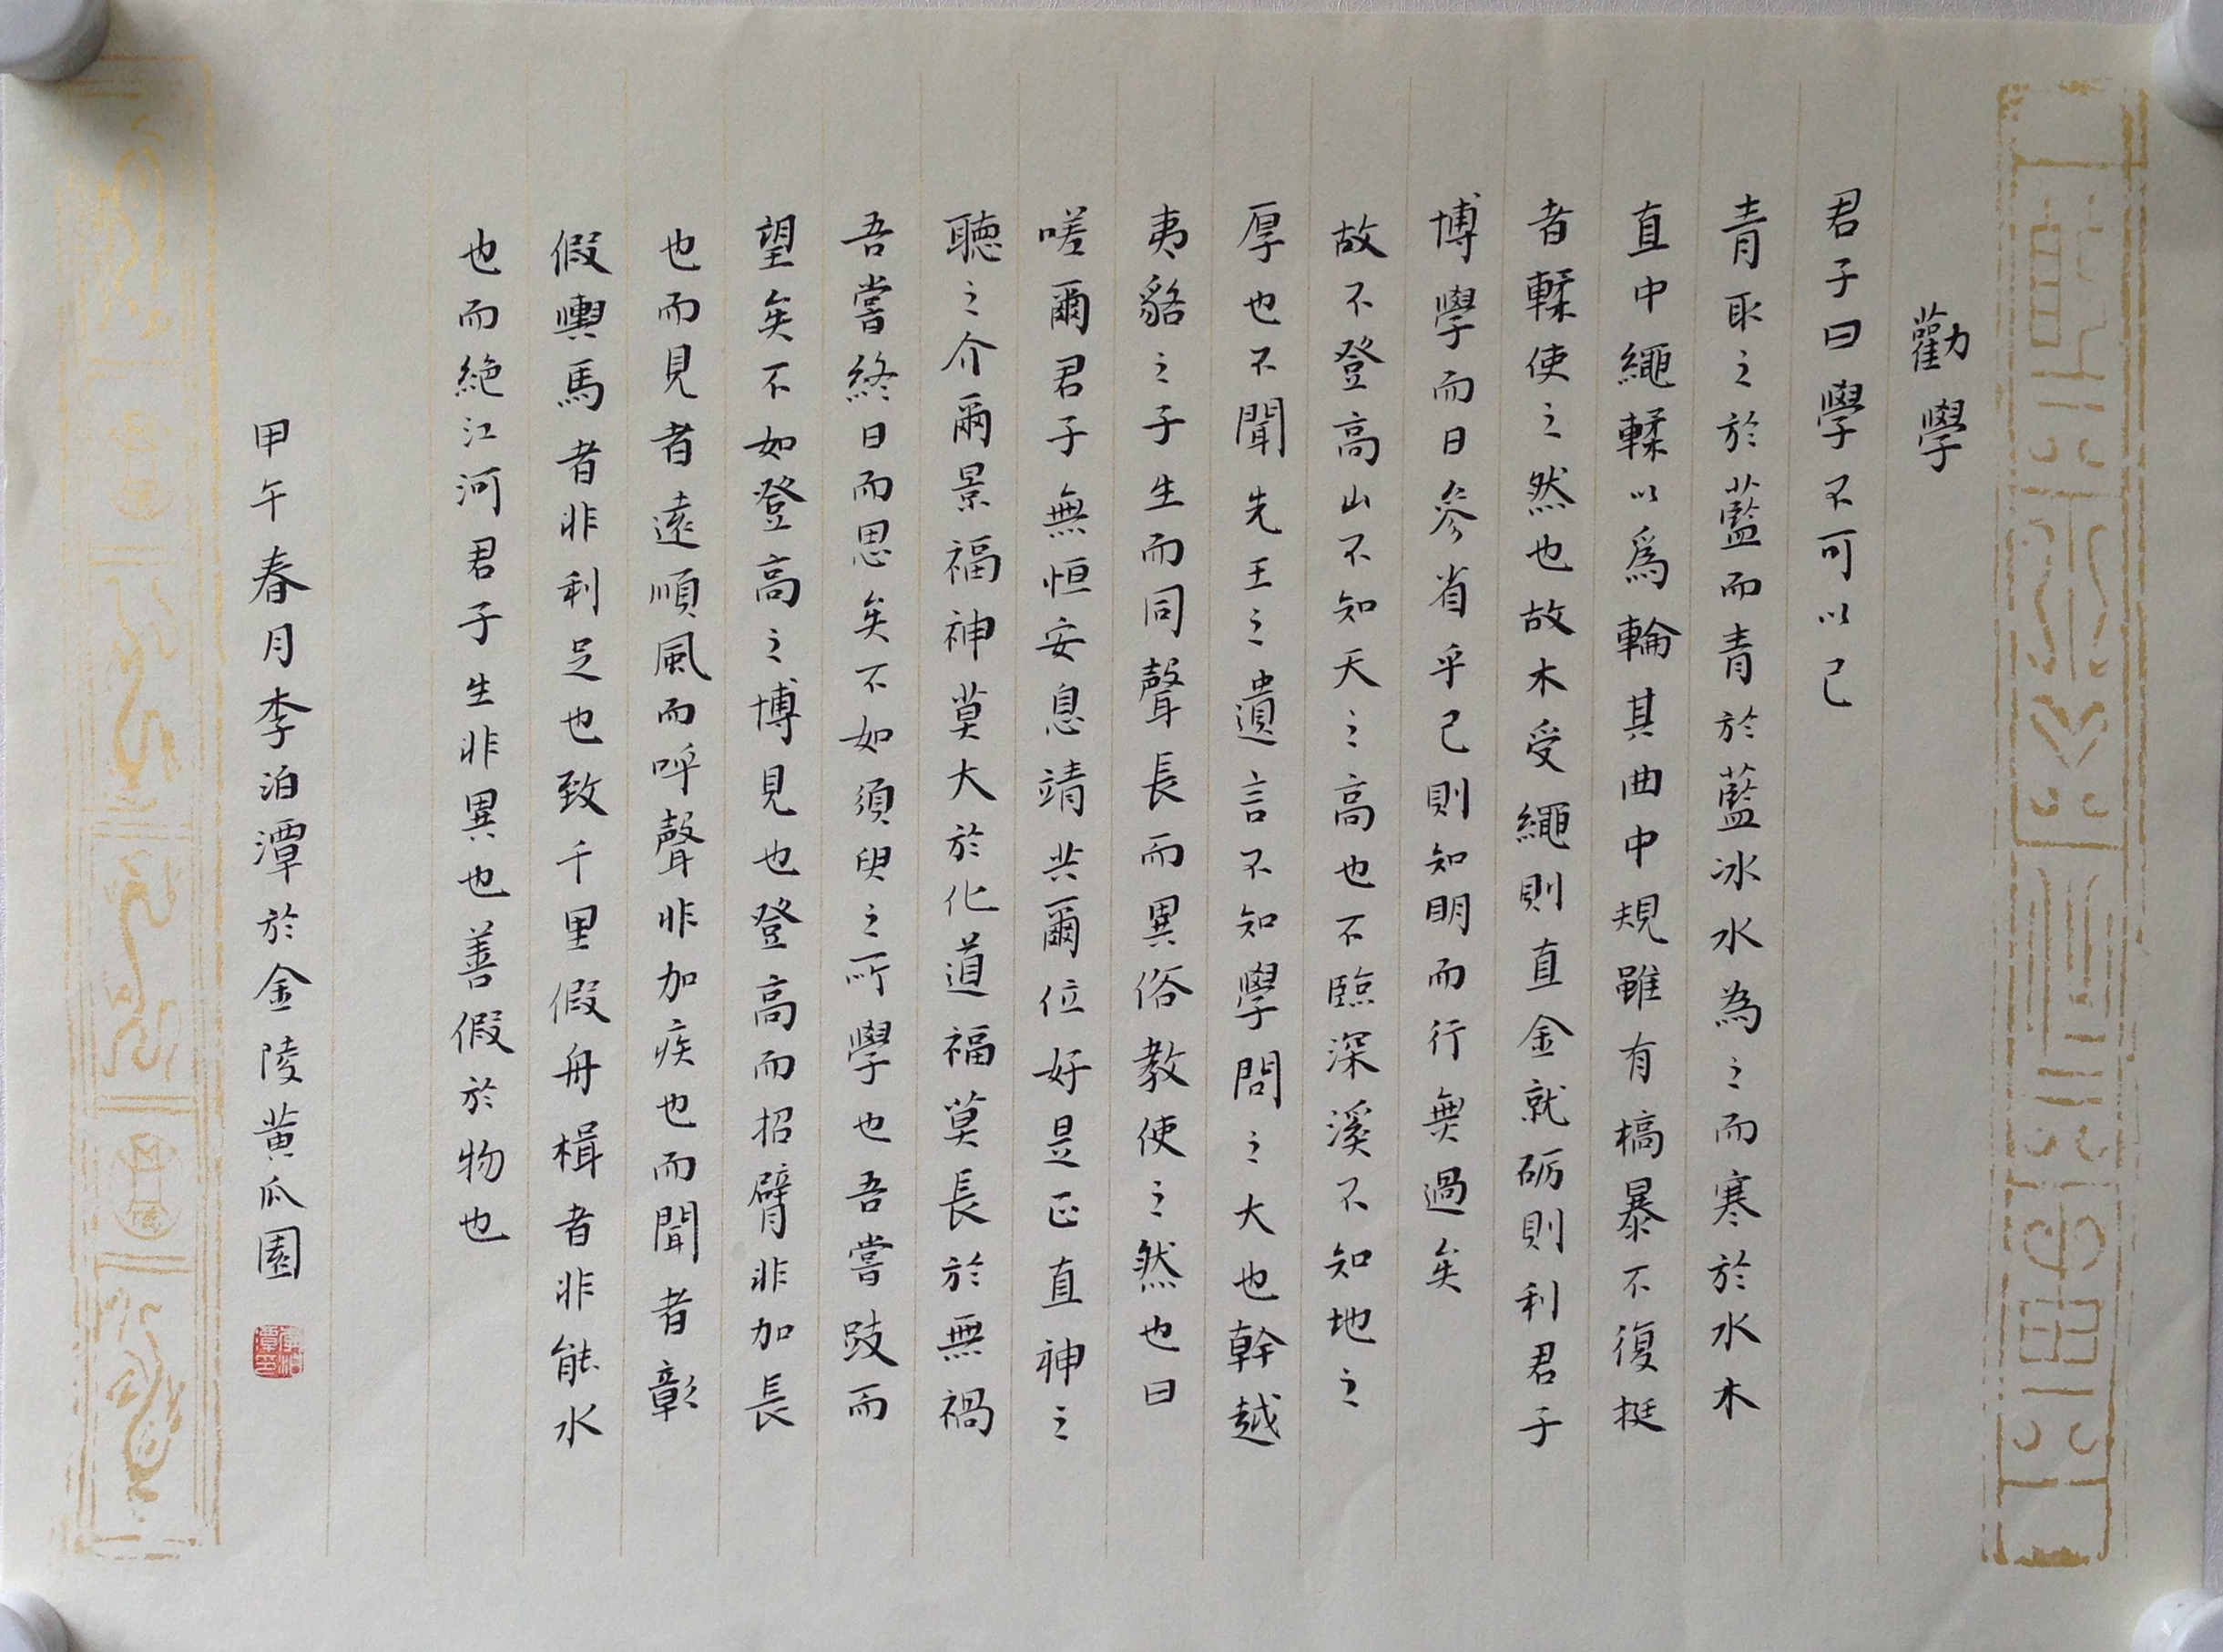 勸學
君子曰學不可以已
青取之於藍而青於藍冰水為之而寒於水木
直中繩輮以爲輪其曲中規雖有槁暴不復挺
者輮使之然也故木受繩則直金就砺則利君子
博學而日參省乎己則知明而行無過矣
故不登高山不知天之高也不臨深溪不知地之
厚也不聞先王之遺言不知學問之大也幹越
夷貉之子生而同聲長而異俗教使之然也曰
嗟爾君子無恒安息靖共爾位好是正直神之
聽之介爾景福神莫大於化道福莫長於無禍
吾嘗終日而思矣不如須臾之所學也吾嘗跂而
望矣不如登高之博見也登高而招臂非加長
也而見者遠順風而呼聲非加疾也而聞者彰
假輿馬者非利足也致千里假舟楫者非能水
也而絶江河君子生非異也善假於物也
甲午春月李泊潭於金陵黄瓜園